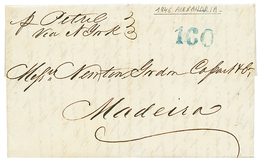 p Petrel
via N York
1846 ALEXANDRIA
160
Messrs Newton Gordon Cossart & Co
Madeira